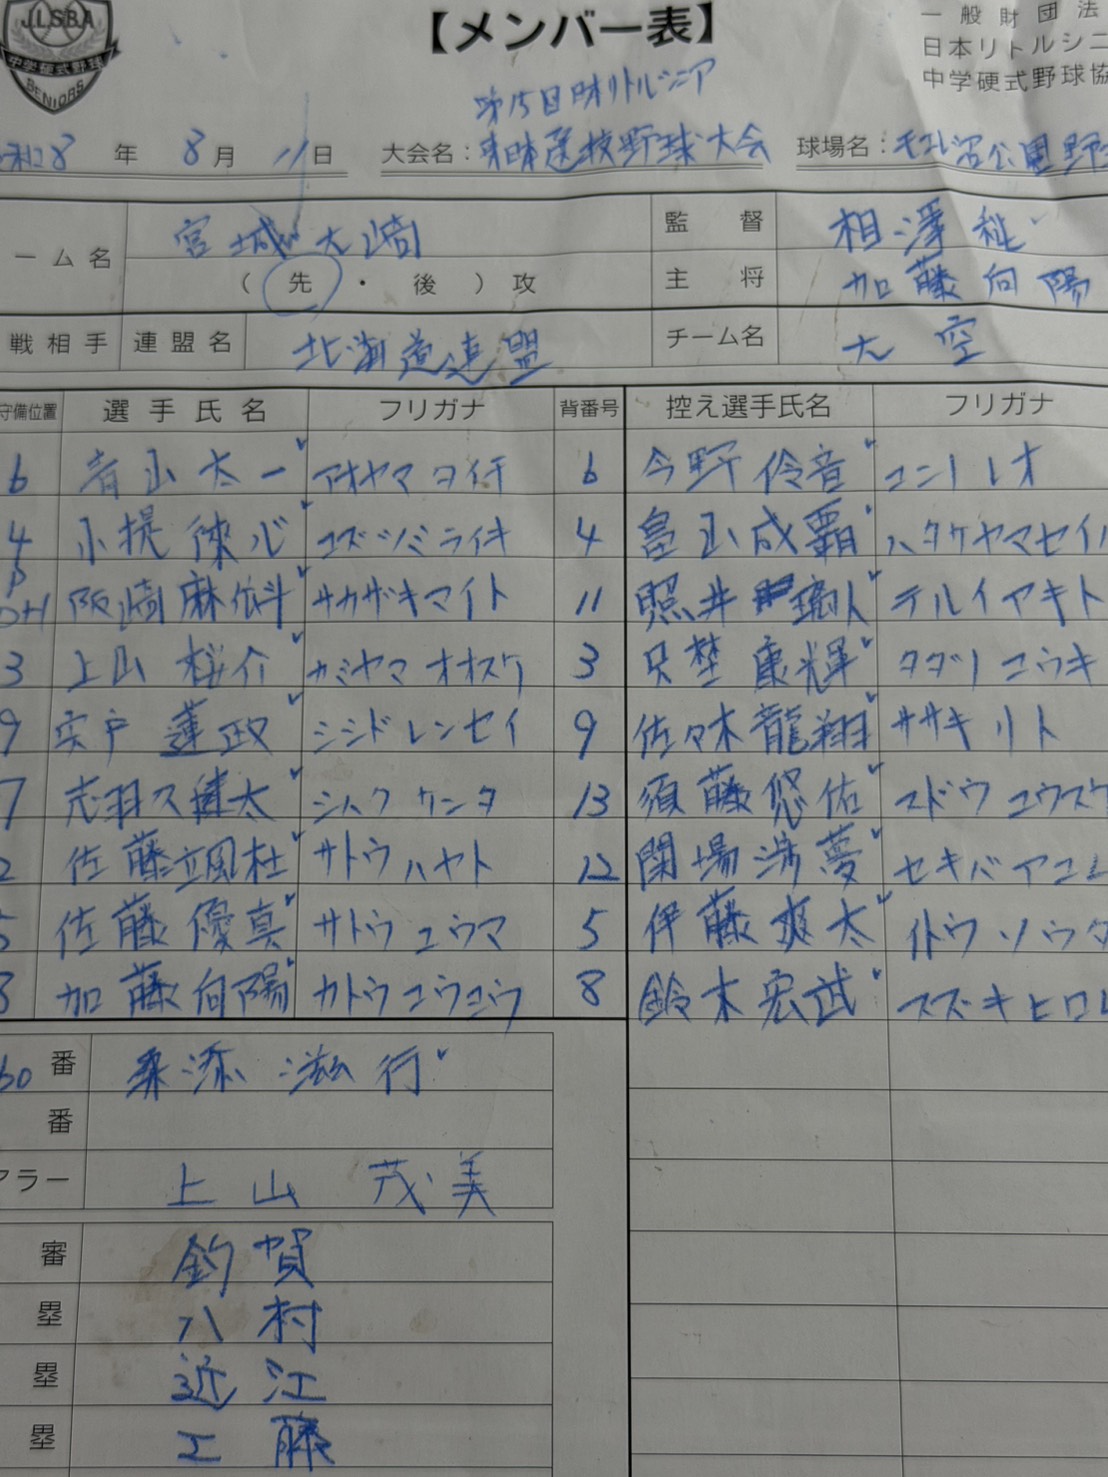 JLSBA
中学硬式野球
SENIORS
【メンバー表】
一般財団法
日本リトルシニ
中学硬式野球協
第15回日本リトルシニア
8年 8月 11日 大会名：東日本選抜野球大会 球場名：モエレ沼公園野
ーム名 宮城大崎 監督 相澤
（先・後）攻 主将 加藤向陽
戦相手 連盟名 北海道連盟 チーム名 大空
守備位置 選手氏名 フリガナ 背番号 控え選手氏名 フリガナ
6 青山太一 アオヤマタイチ 6 今野伶音 コンノレオ
4 小堤徠心 コズツミライキ 4 畠山成覇 ハタケヤマセイハ
P
DH 阪崎麻依斗 サカザキマイト 11 照井璃人 テルイアキト
3 上山桜介 カミヤマオオスケ 3 只埜康輝 タダノコウキ
9 宍戸蓮政 シシドレンセイ 9 佐々木龍翔 ササキリト
7 志羽久健太 シハクケンタ 13 須藤悠佑 スドウユウスケ
2 佐藤颯杜 サトウハヤト 12 関場渉夢 セキバアユム
5 佐藤優真 サトウユウマ 5 伊藤爽太 イトウソウタ
8 加藤向陽 カトウコウヨウ 8 鈴木宏武 スズキヒロム
60番
番
アラー 上山茂美
審 釣賀
塁 八村
塁 近江
塁 工藤